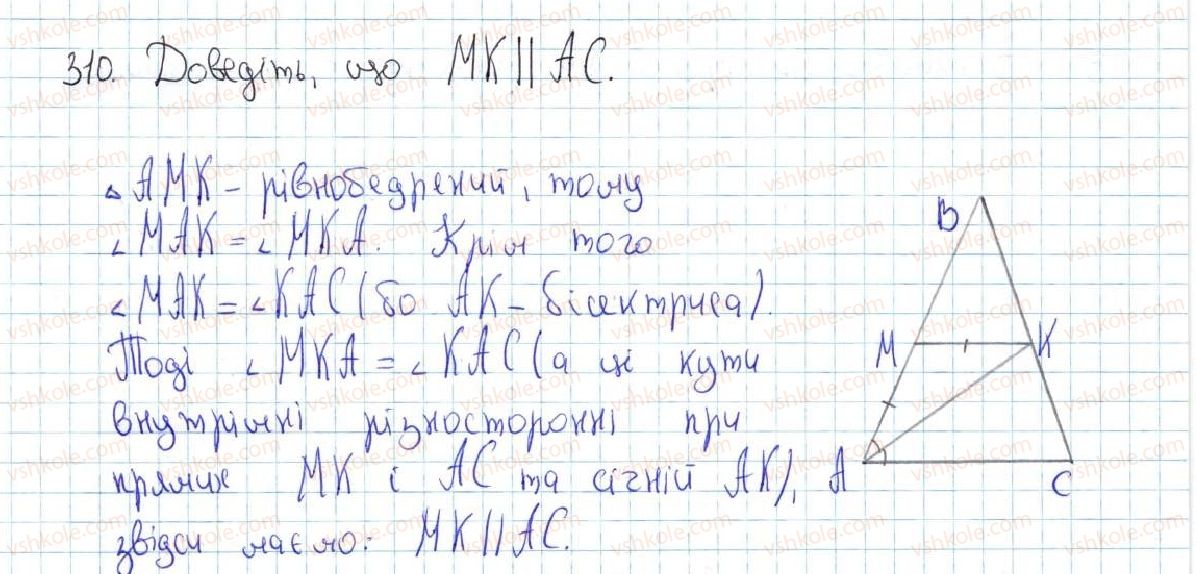 310. Доведіть, що MK || AC.
△ AMK – рівнобедрений, тому
∠ MAK = ∠ MKA. Крім того
∠ MAK = ∠ KAC (бо AK – бісектриса).
Тоді ∠ MKA = ∠ KAC (а ці кути
внутрішні різносторонні при
прямих MK і AC та січній AK),
звідси маємо: MK || AC.
B
M
K
A
C
vshkole.com